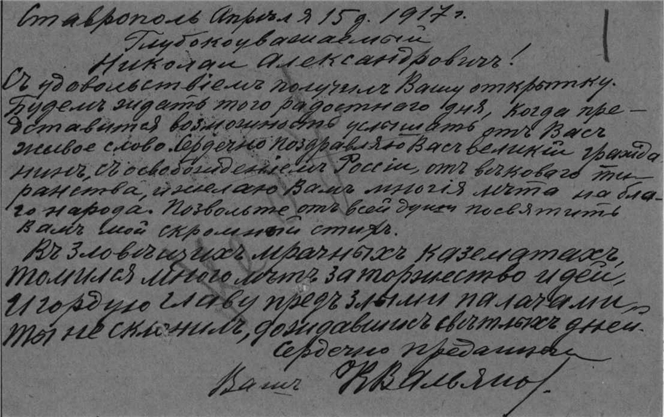 Ставрополь Апрѣля 15 д. 1917 г.
Глубокоуважаемый
Николай Александровичъ!
Съ удовольствіемъ получилъ Вашу открытку.
Будемъ ждать того радостнаго дня, когда пре-
дставится возможность услышать отъ Васъ
живое слово. Сердечно поздравляю Васъ великій гражда
нинъ, съ освобожденіемъ Россіи, отъ вѣковаго ти-
ранства, и желаю Вамъ многія лѣта на бла-
го народа. Позвольте отъ всей души посвятить
Вамъ мой скромный стихъ.
Въ зловѣщихъ мрачныхъ казематахъ,
томился много лѣтъ за торжество идей,
И гордую главу предъ злыми палачами,
ты не склонилъ, дожидавшись свѣтлыхъ дней.
Сердечно преданный
Вашъ К Вальяно